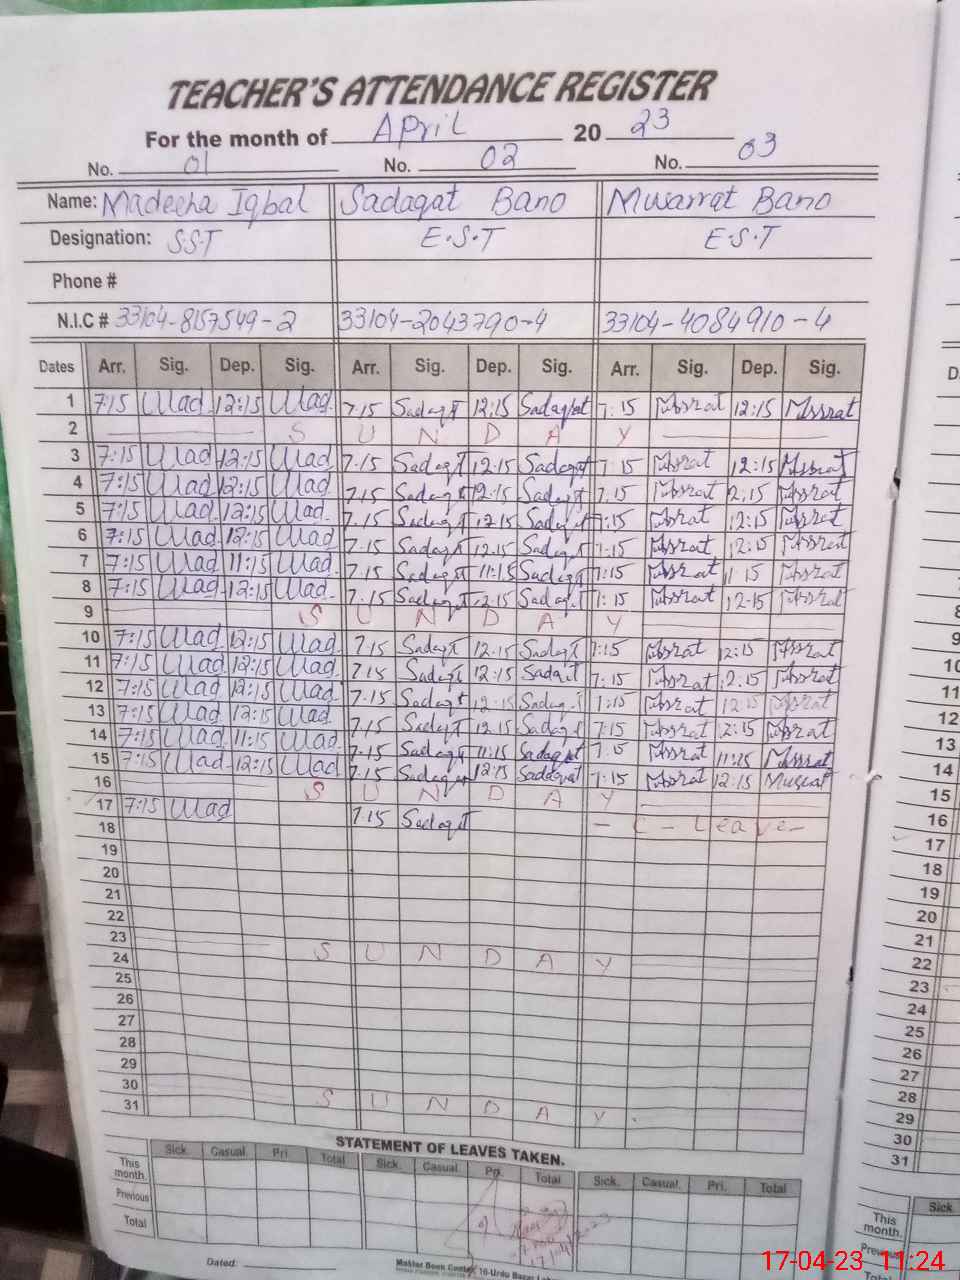 TEACHER'S ATTENDANCE REGISTER
For the month of April 20 23
No. 01 No. 02 No. 03
Name: Madeeha Iqbal Sadaqat Bano Musarrat Bano
Designation: S.S.T E.S.T E.S.T
Phone #
N.I.C # 33104-8157549-2 33104-2043790-4 33104-4084910-4
Dates Arr. Sig. Dep. Sig. Arr. Sig. Dep. Sig. Arr. Sig. Dep. Sig.
1 7:15 Mad 12:15 Mad 7.15 Sadaqt 12:15 Sadaqat 7:15 Mssrat 12:15 Mssrat
2 S U N D A Y
3 7:15 Mad 12:15 Mad 7.15 Sadaqt 12.15 Sadaqat 7.15 Mssrat 12:15 Mssrat
4 7:15 Mad 12:15 Mad 7.15 Sadaqt 12:15 Sadaqt 7.15 Mssrat 12:15 Mssrat
5 7:15 Mad 12:15 Mad 7.15 Sadaqt 12.15 Sadaqt 7:15 Mssrat 12:15 Mssrat
6 7:15 Mad 12:15 Mad 7.15 Sadaqt 12.15 Sadaqt 7:15 Mssrat 12:15 Mssrat
7 7:15 Mad 11:15 Mad 7.15 Sadaqt 11:15 Sadaqt 7:15 Mssrat 11:15 Mssrat
8 7:15 Mad 12:15 Mad 7.15 Sadaqt 12.15 Sadaqt 7:15 Mssrat 12-15 Mssrat
9 S U N D A Y
10 7:15 Mad 12:15 Mad 7.15 Sadaqt 12.15 Sadaqt 7:15 Mssrat 12:15 Mssrat
11 7:15 Mad 12:15 Mad 7.15 Sadaqt 12:15 Sadaqt 7:15 Mssrat 12:15 Mssrat
12 7:15 Mad 12:15 Mad 7.15 Sadaqt 12:15 Sadaqt 7:15 Mssrat 12:15 Mssrat
13 7:15 Mad 12:15 Mad 7.15 Sadaqt 12.15 Sadaqt 7:15 Mssrat 12:15 Mssrat
14 7:15 Mad 11:15 Mad 7.15 Sadaqt 11:15 Sadaqat 7:15 Mssrat 11:15 Mssrat
15 7:15 Mad 12:15 Mad 7.15 Sadaqat 12:15 Sadaqat 7:15 Mssrat 12:15 Mussrat
16 S U N D A Y
17 7:15 Mad 7.15 Sadaqt - C - Leave -
18
19
20
21
22
23 S U N D A Y
24
25
26
27
28
29
30 S U N D A Y
31
STATEMENT OF LEAVES TAKEN.
Sick. Casual. Pri. Total Sick. Casual. Pri. Total Sick. Casual. Pri. Total
This month.
Previous
Total
Dated:
Book Center 16-Urdu Bazar
D
8
9
10
11
12
13
14
15
16
17
18
19
20
21
22
23
24
25
26
27
28
29
30
31
Sick
This month.
Previous
Total
17-04-23 11:24